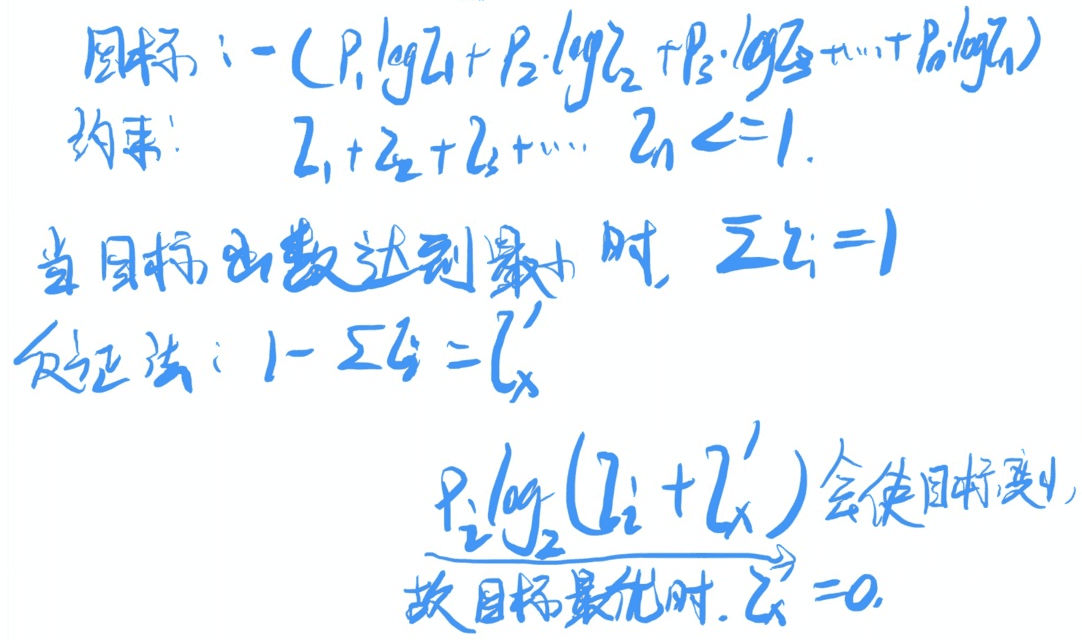 目标：-(P₁logZ₁+P₂·logZ₂+P₃·logZ₃+……+Pₙ·logZₙ)
约束：Z₁+Z₂+Z₃+…… Zₙ<=1.
当目标函数达到最小时，ΣZᵢ=1
反证法：1-ΣZᵢ=Zₓ'
Pᵢlog₂(Zᵢ+Zₓ')会使目标变小，
故目标最优时.Zₓ'=0.